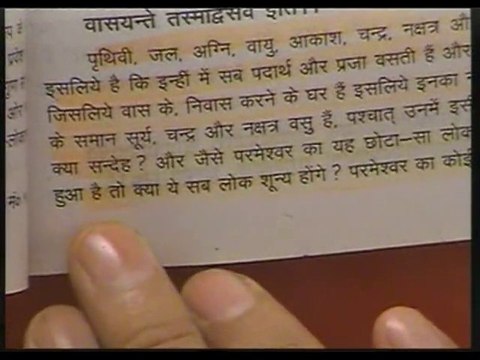 वासयन्ते तस्माद्वसव इति।।
पृथिवी, जल, अग्नि, वायु, आकाश, चन्द्र, नक्षत्र औ
इसलिये है कि इन्हीं में सब पदार्थ और प्रजा वसती हैं और
जिसलिये वास के, निवास करने के घर हैं इसलिये इनका न
के समान सूर्य, चन्द्र और नक्षत्र वसु हैं, पश्चात् उनमें इसी
क्या सन्देह? और जैसे परमेश्वर का यह छोटा–सा लोक
हुआ है तो क्या ये सब लोक शून्य होंगे? परमेश्वर का कोई